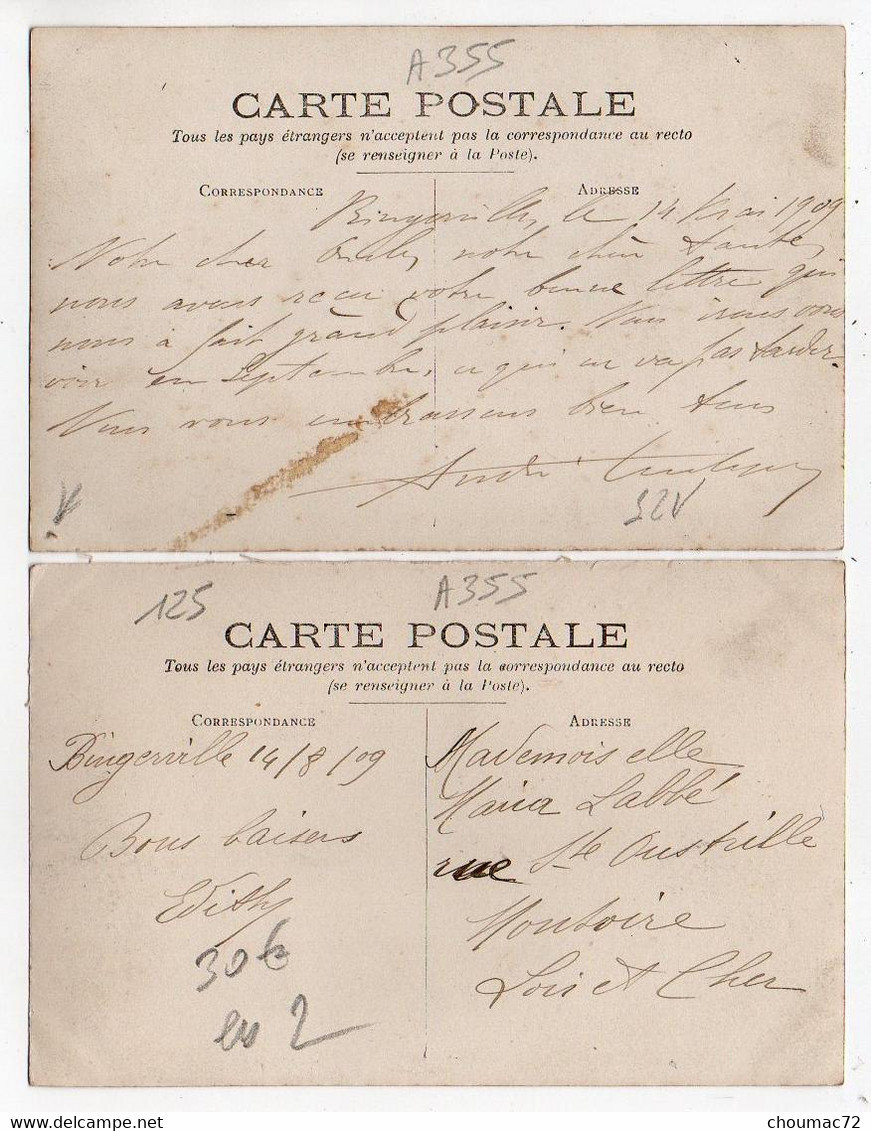 A355
CARTE POSTALE
Tous les pays étrangers n'acceptent pas la correspondance au recto
(se renseigner à la Poste).
CORRESPONDANCE ADRESSE
Bingerville, le 14 Mai 1909
Notre cher notre chère tante,
nous avons reçu votre bonne lettre qui
nous a fait grand plaisir. Nous irons vous
voir en Septembre, ce qui ne va pas tarder.
Nous vous embrassons bien tous
André
A355
125
CARTE POSTALE
Tous les pays étrangers n'acceptent pas la correspondance au recto
(se renseigner à la Poste).
CORRESPONDANCE ADRESSE
Bingerville 14/8/09
Bons baisers
Edith
30€
en 2
Mademoiselle
Maria Labbé
rue Ste Oustrille
Montoire
Loir et Cher
choumac72